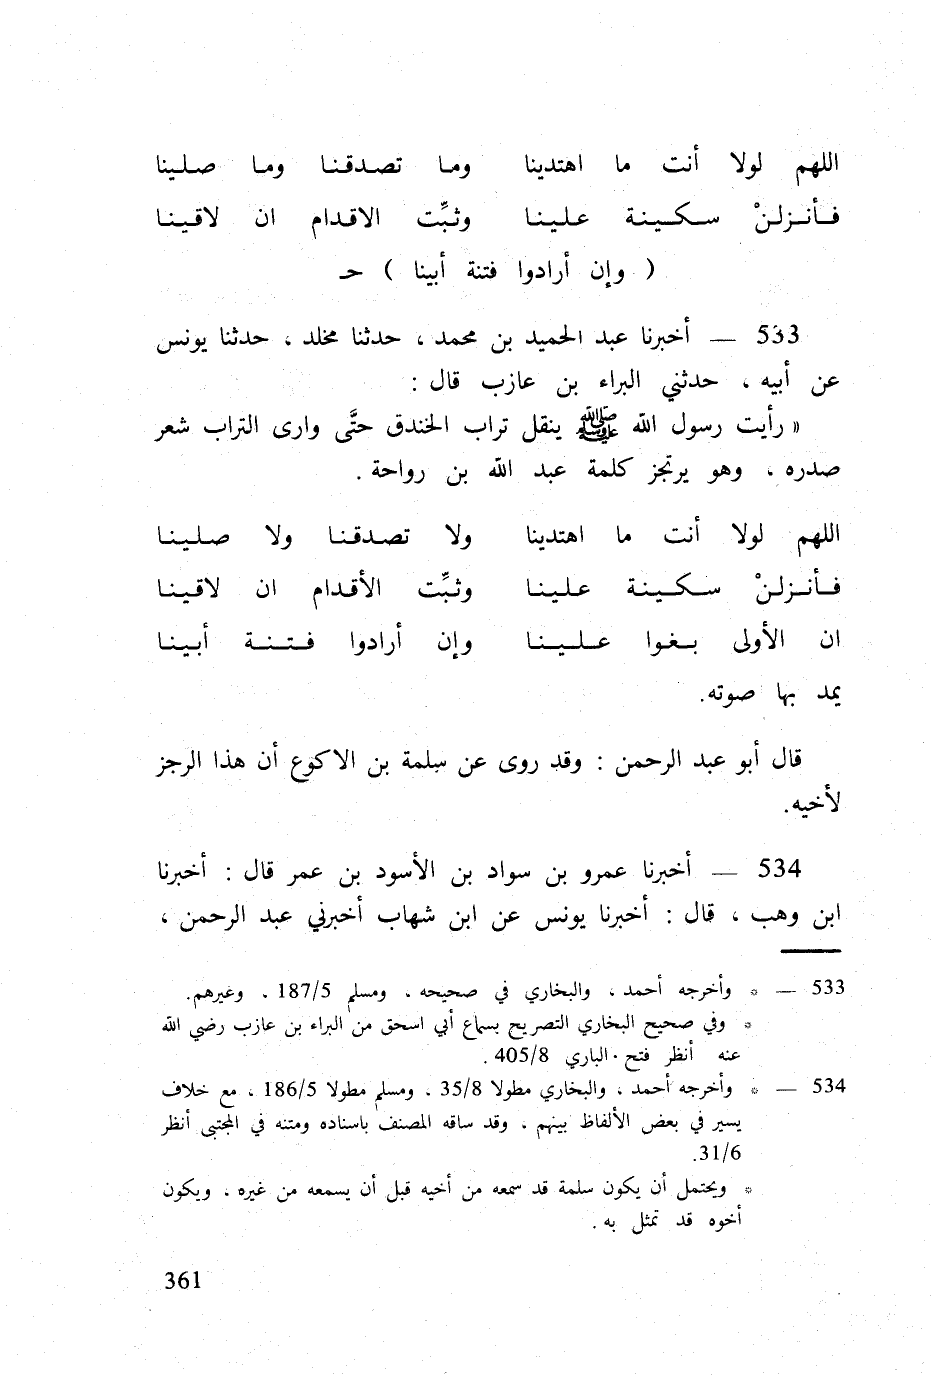 اللهم لولا أنت ما اهتدينا وما تصدقنا وما صلينا
فأنزلنْ سكينة علينا وثبِّت الاقدام ان لاقينا
( وإن أرادوا فتنة أبينا ) حـ
533 — أخبرنا عبد الحميد بن محمد ، حدثنا مخلد ، حدثنا يونس
عن أبيه ، حدثني البراء بن عازب قال :
« رأيت رسول الله ﷺ ينقل تراب الخندق حتَّى وارى التراب شعر
صدره ، وهو يرتجز كلمة عبد الله بن رواحة .
اللهم لولا أنت ما اهتدينا ولا تصدقنا ولا صلينا
فأنزلنْ سكينة علينا وثبِّت الأقدام ان لاقينا
ان الأولى بغوا علينا وإن أرادوا فتنة أبينا
يمد بها صوته.
قال أبو عبد الرحمن : وقد روى عن سلمة بن الاكوع أن هذا الرجز
لأخيه.
534 — أخبرنا عمرو بن سواد بن الأسود بن عمر قال : أخبرنا
ابن وهب ، قال : أخبرنا يونس عن ابن شهاب أخبرني عبد الرحمن ،
533 — * وأخرجه أحمد ، والبخاري في صحيحه ، ومسلم 187/5 ، وغيرهم.
* وفي صحيح البخاري التصريح بسماع أبي اسحق من البراء بن عازب رضي الله
عنه أنظر فتح الباري 405/8 .
534 — * وأخرجه أحمد ، والبخاري مطولا 35/8 ، ومسلم مطولا 186/5 ، مع خلاف
يسير في بعض الألفاظ بينهم ، وقد ساقه المصنف باسناده ومتنه في المجتبى أنظر
31/6.
* ويحتمل أن يكون سلمة قد سمعه من أخيه قبل أن يسمعه من غيره ، ويكون
أخوه قد تمثل به .
361